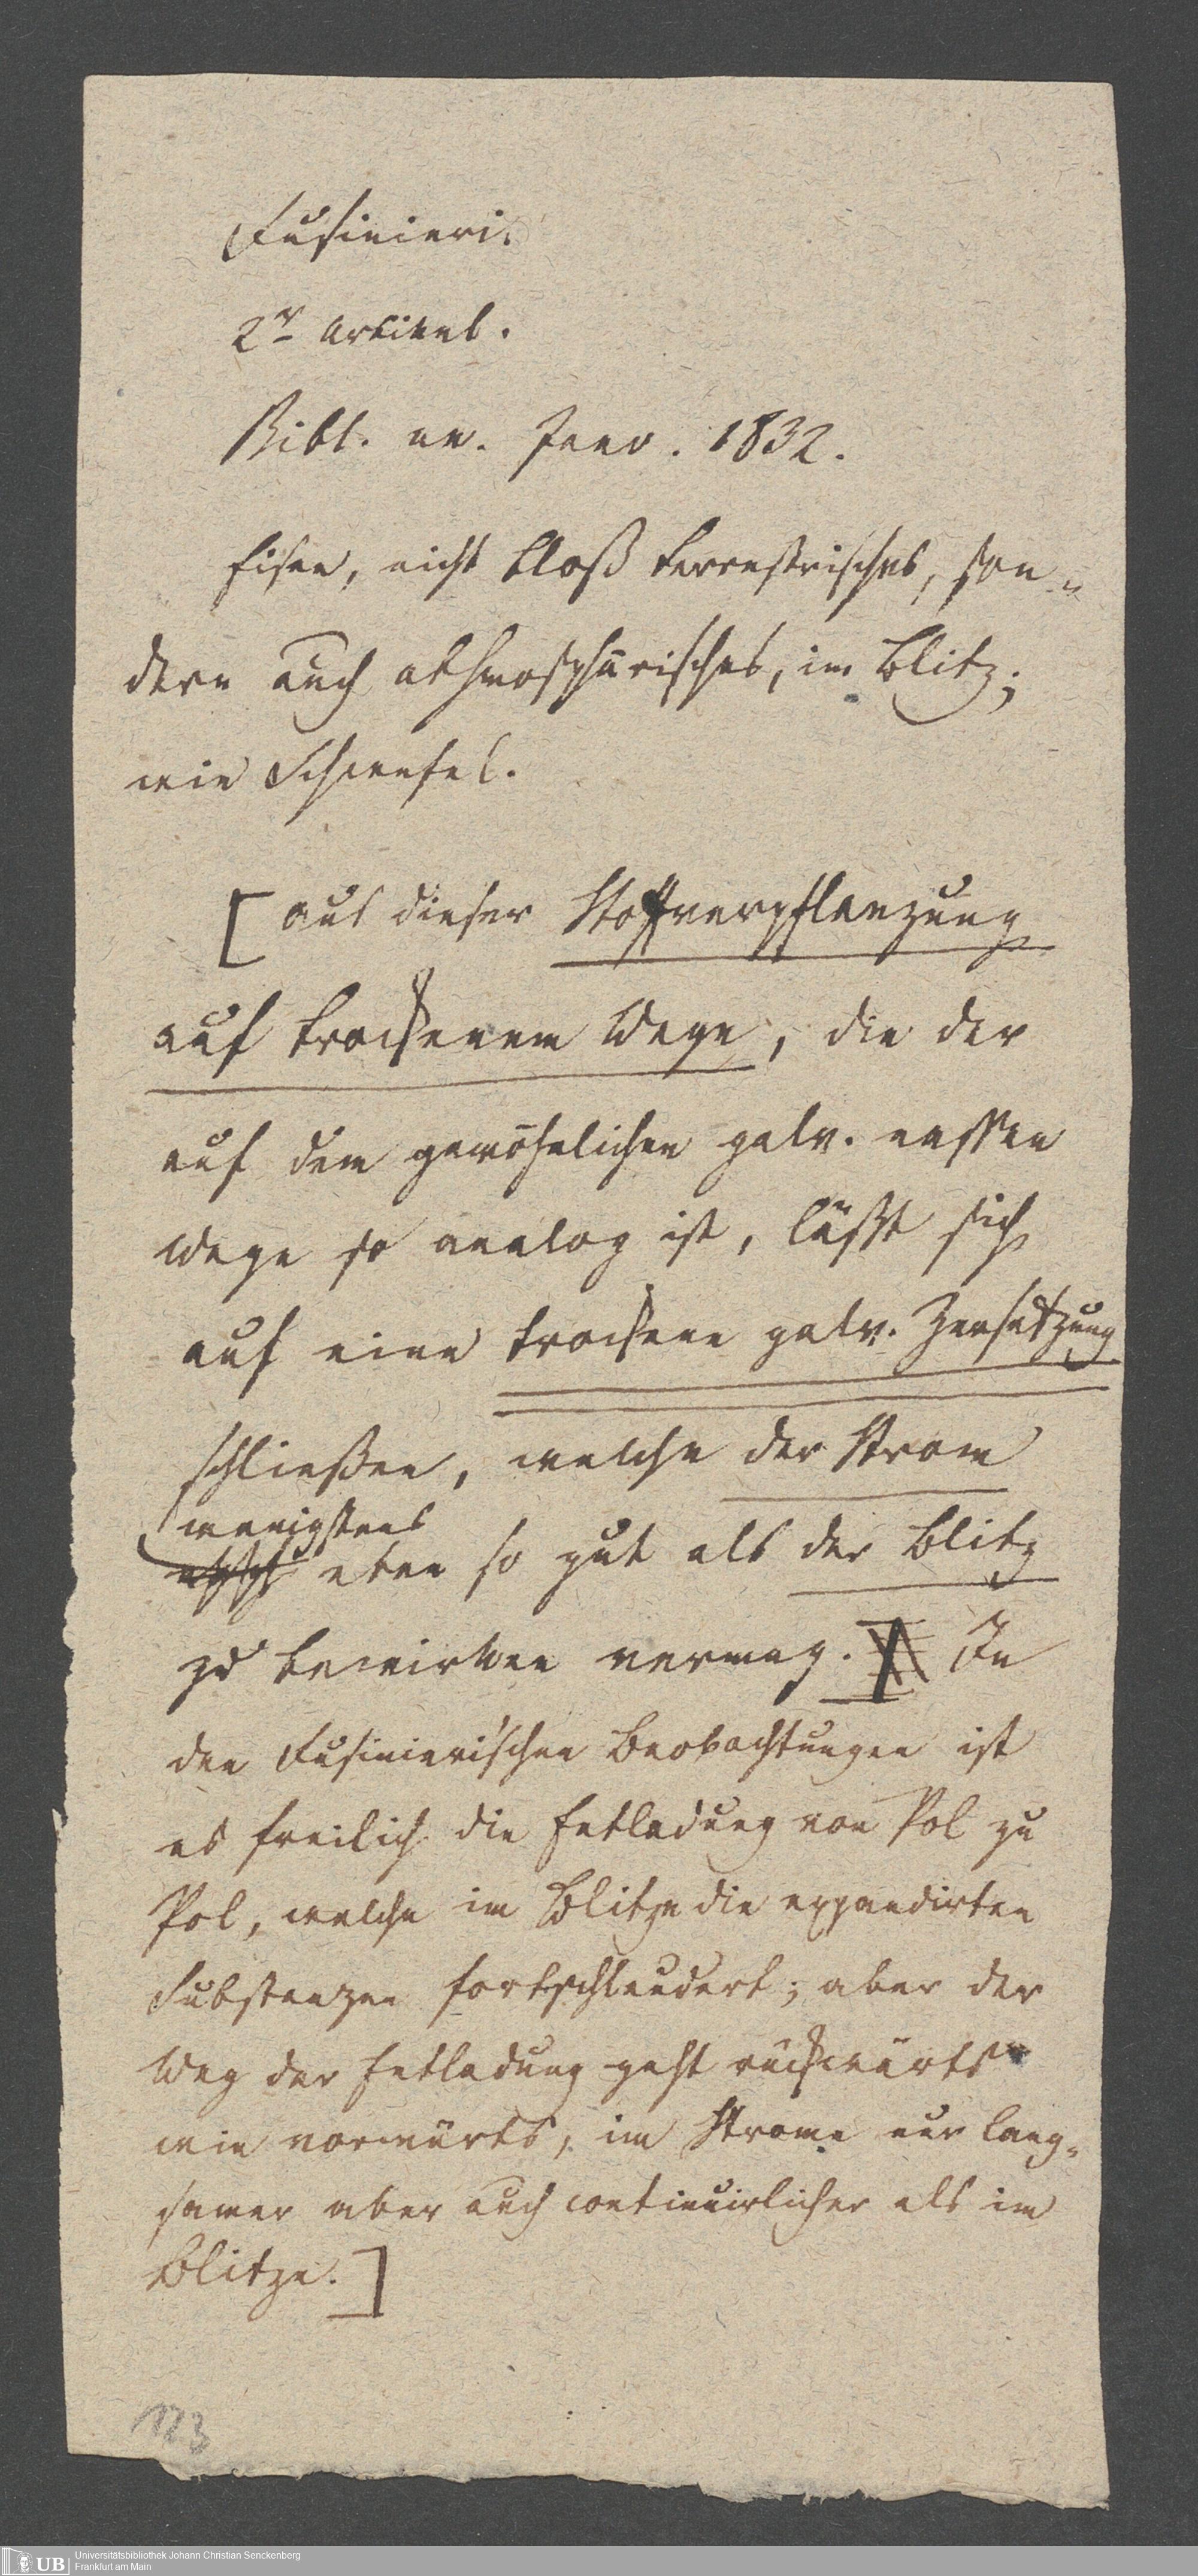 Fusinieri.
2r Artikel.
Bibl. un. Janv. 1832.
Eisen, nicht bloß terrestrisches, son-
dern auch athmosphärisches, im Blitz;
wie Schwefel.
[aus dieser Stoffverpflanzung
auf trockenem Wege, die der
auf dem gewöhnlichen galv. nassen
Wege so analog ist, läßt sich
auf eine trockene galv. Zersetzung
schließen, welche der Strom
wenigstens
eben so gut als der Blitz
zu bewirken vermag. In
den Fusinieri'schen Beobachtungen ist
es freilich die Entladung von Pol zu
Pol, welche im Blitze die expandirten
Substanzen fortschleudert; aber der
Weg der Entladung geht rückwärts
wie vorwärts, im Strome nur lang-
samer aber auch continuirlicher als im
Blitze.]
123
UB
Universitätsbibliothek Johann Christian Senckenberg
Frankfurt am Main